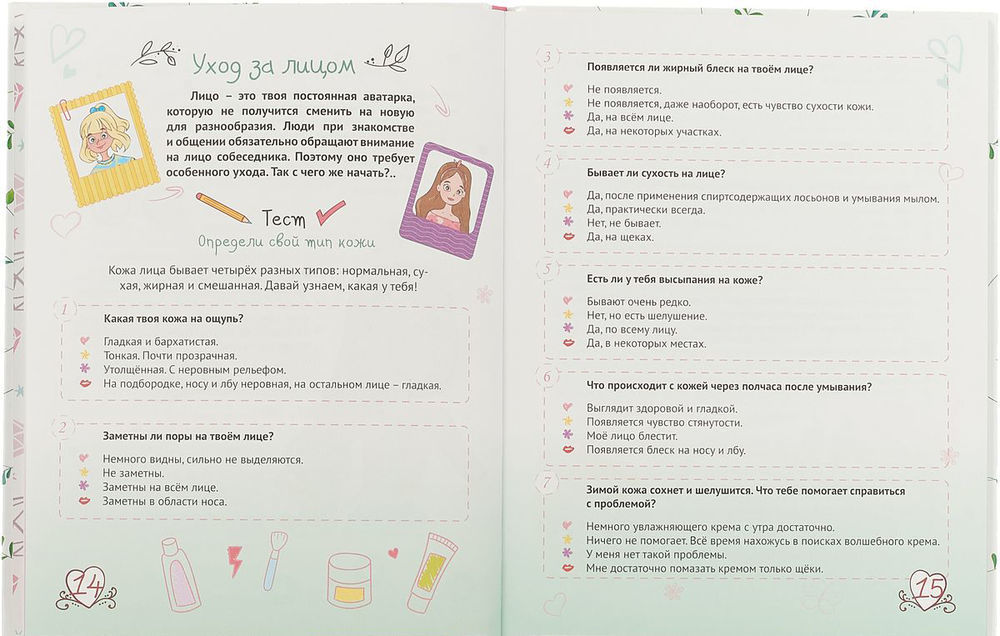 Уход за лицом
Лицо – это твоя постоянная аватарка,
которую не получится сменить на новую
для разнообразия. Люди при знакомстве
и общении обязательно обращают внимание
на лицо собеседника. Поэтому оно требует
особенного ухода. Так с чего же начать?..
Тест
Определи свой тип кожи
Кожа лица бывает четырёх разных типов: нормальная, су-
хая, жирная и смешанная. Давай узнаем, какая у тебя!
1
Какая твоя кожа на ощупь?
Гладкая и бархатистая.
Тонкая. Почти прозрачная.
Утолщённая. С неровным рельефом.
На подбородке, носу и лбу неровная, на остальном лице – гладкая.
2
Заметны ли поры на твоём лице?
Немного видны, сильно не выделяются.
Не заметны.
Заметны на всём лице.
Заметны в области носа.
14
3
Появляется ли жирный блеск на твоём лице?
Не появляется.
Не появляется, даже наоборот, есть чувство сухости кожи.
Да, на всём лице.
Да, на некоторых участках.
4
Бывает ли сухость на лице?
Да, после применения спиртсодержащих лосьонов и умывания мылом.
Да, практически всегда.
Нет, не бывает.
Да, на щеках.
5
Есть ли у тебя высыпания на коже?
Бывают очень редко.
Нет, но есть шелушение.
Да, по всему лицу.
Да, в некоторых местах.
6
Что происходит с кожей через полчаса после умывания?
Выглядит здоровой и гладкой.
Появляется чувство стянутости.
Моё лицо блестит.
Появляется блеск на носу и лбу.
7
Зимой кожа сохнет и шелушится. Что тебе помогает справиться
с проблемой?
Немного увлажняющего крема с утра достаточно.
Ничего не помогает. Всё время нахожусь в поисках волшебного крема.
У меня нет такой проблемы.
Мне достаточно помазать кремом только щёки.
15